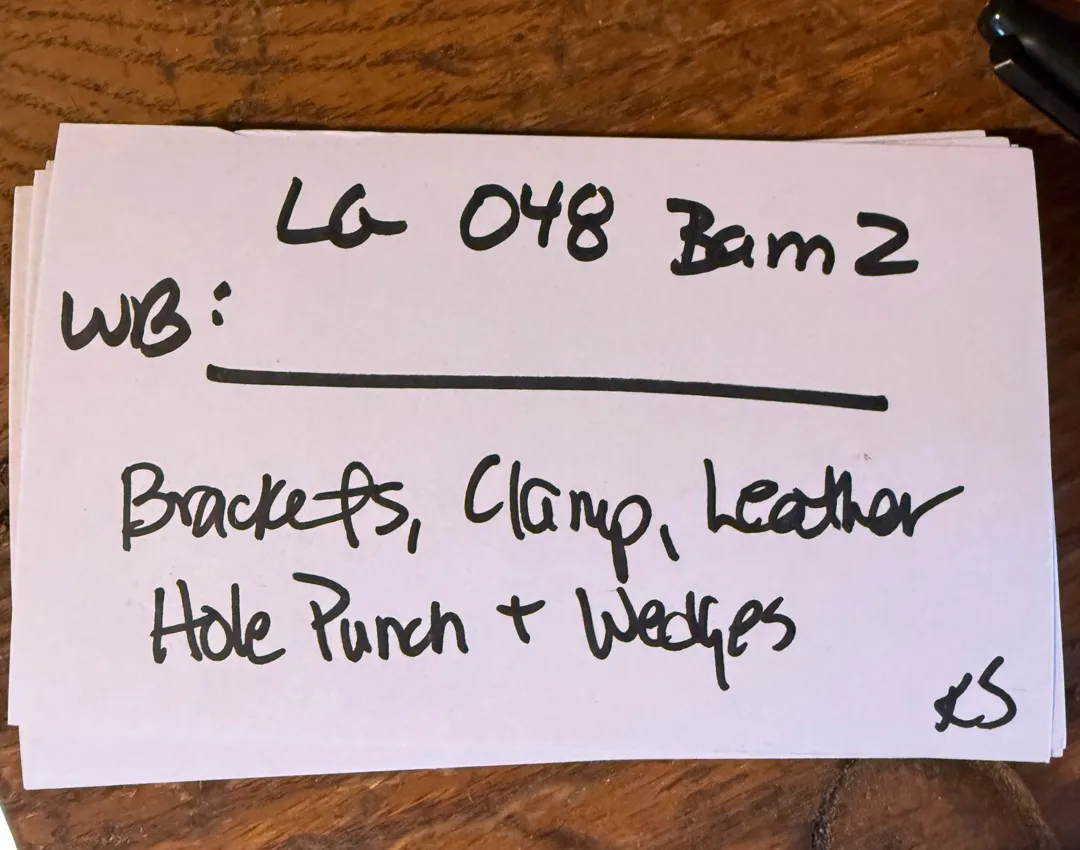 LG 048 Bam 2
WB:
Brackets, Clamp, Leather
Hole Punch + Wedges
KS